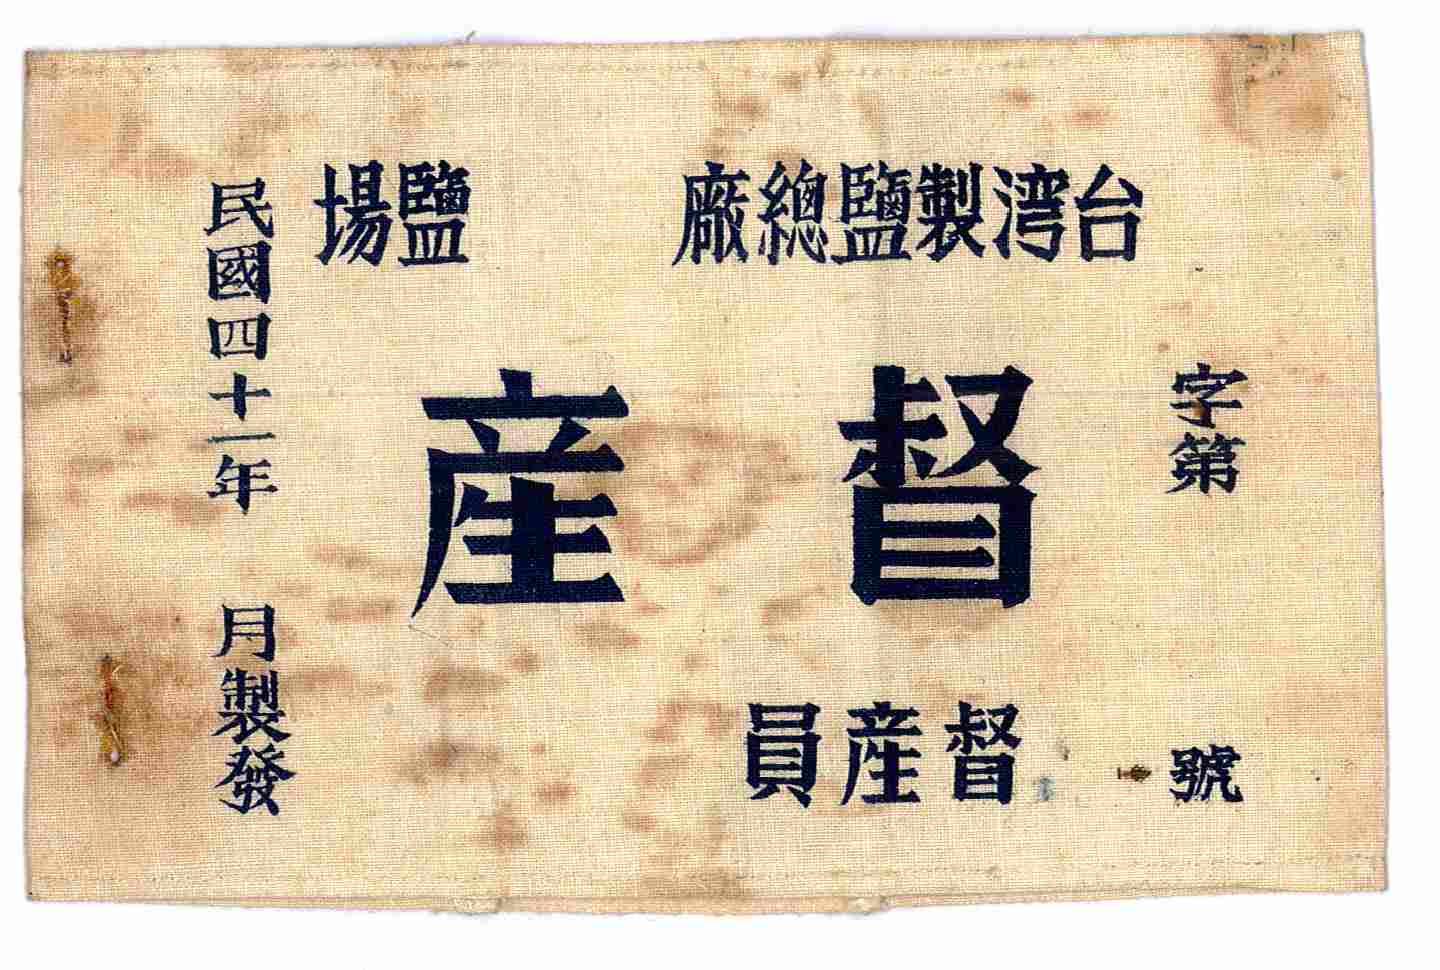 台湾製鹽總廠　鹽場
字第　號
督産
督産員
民國四十一年　月製發